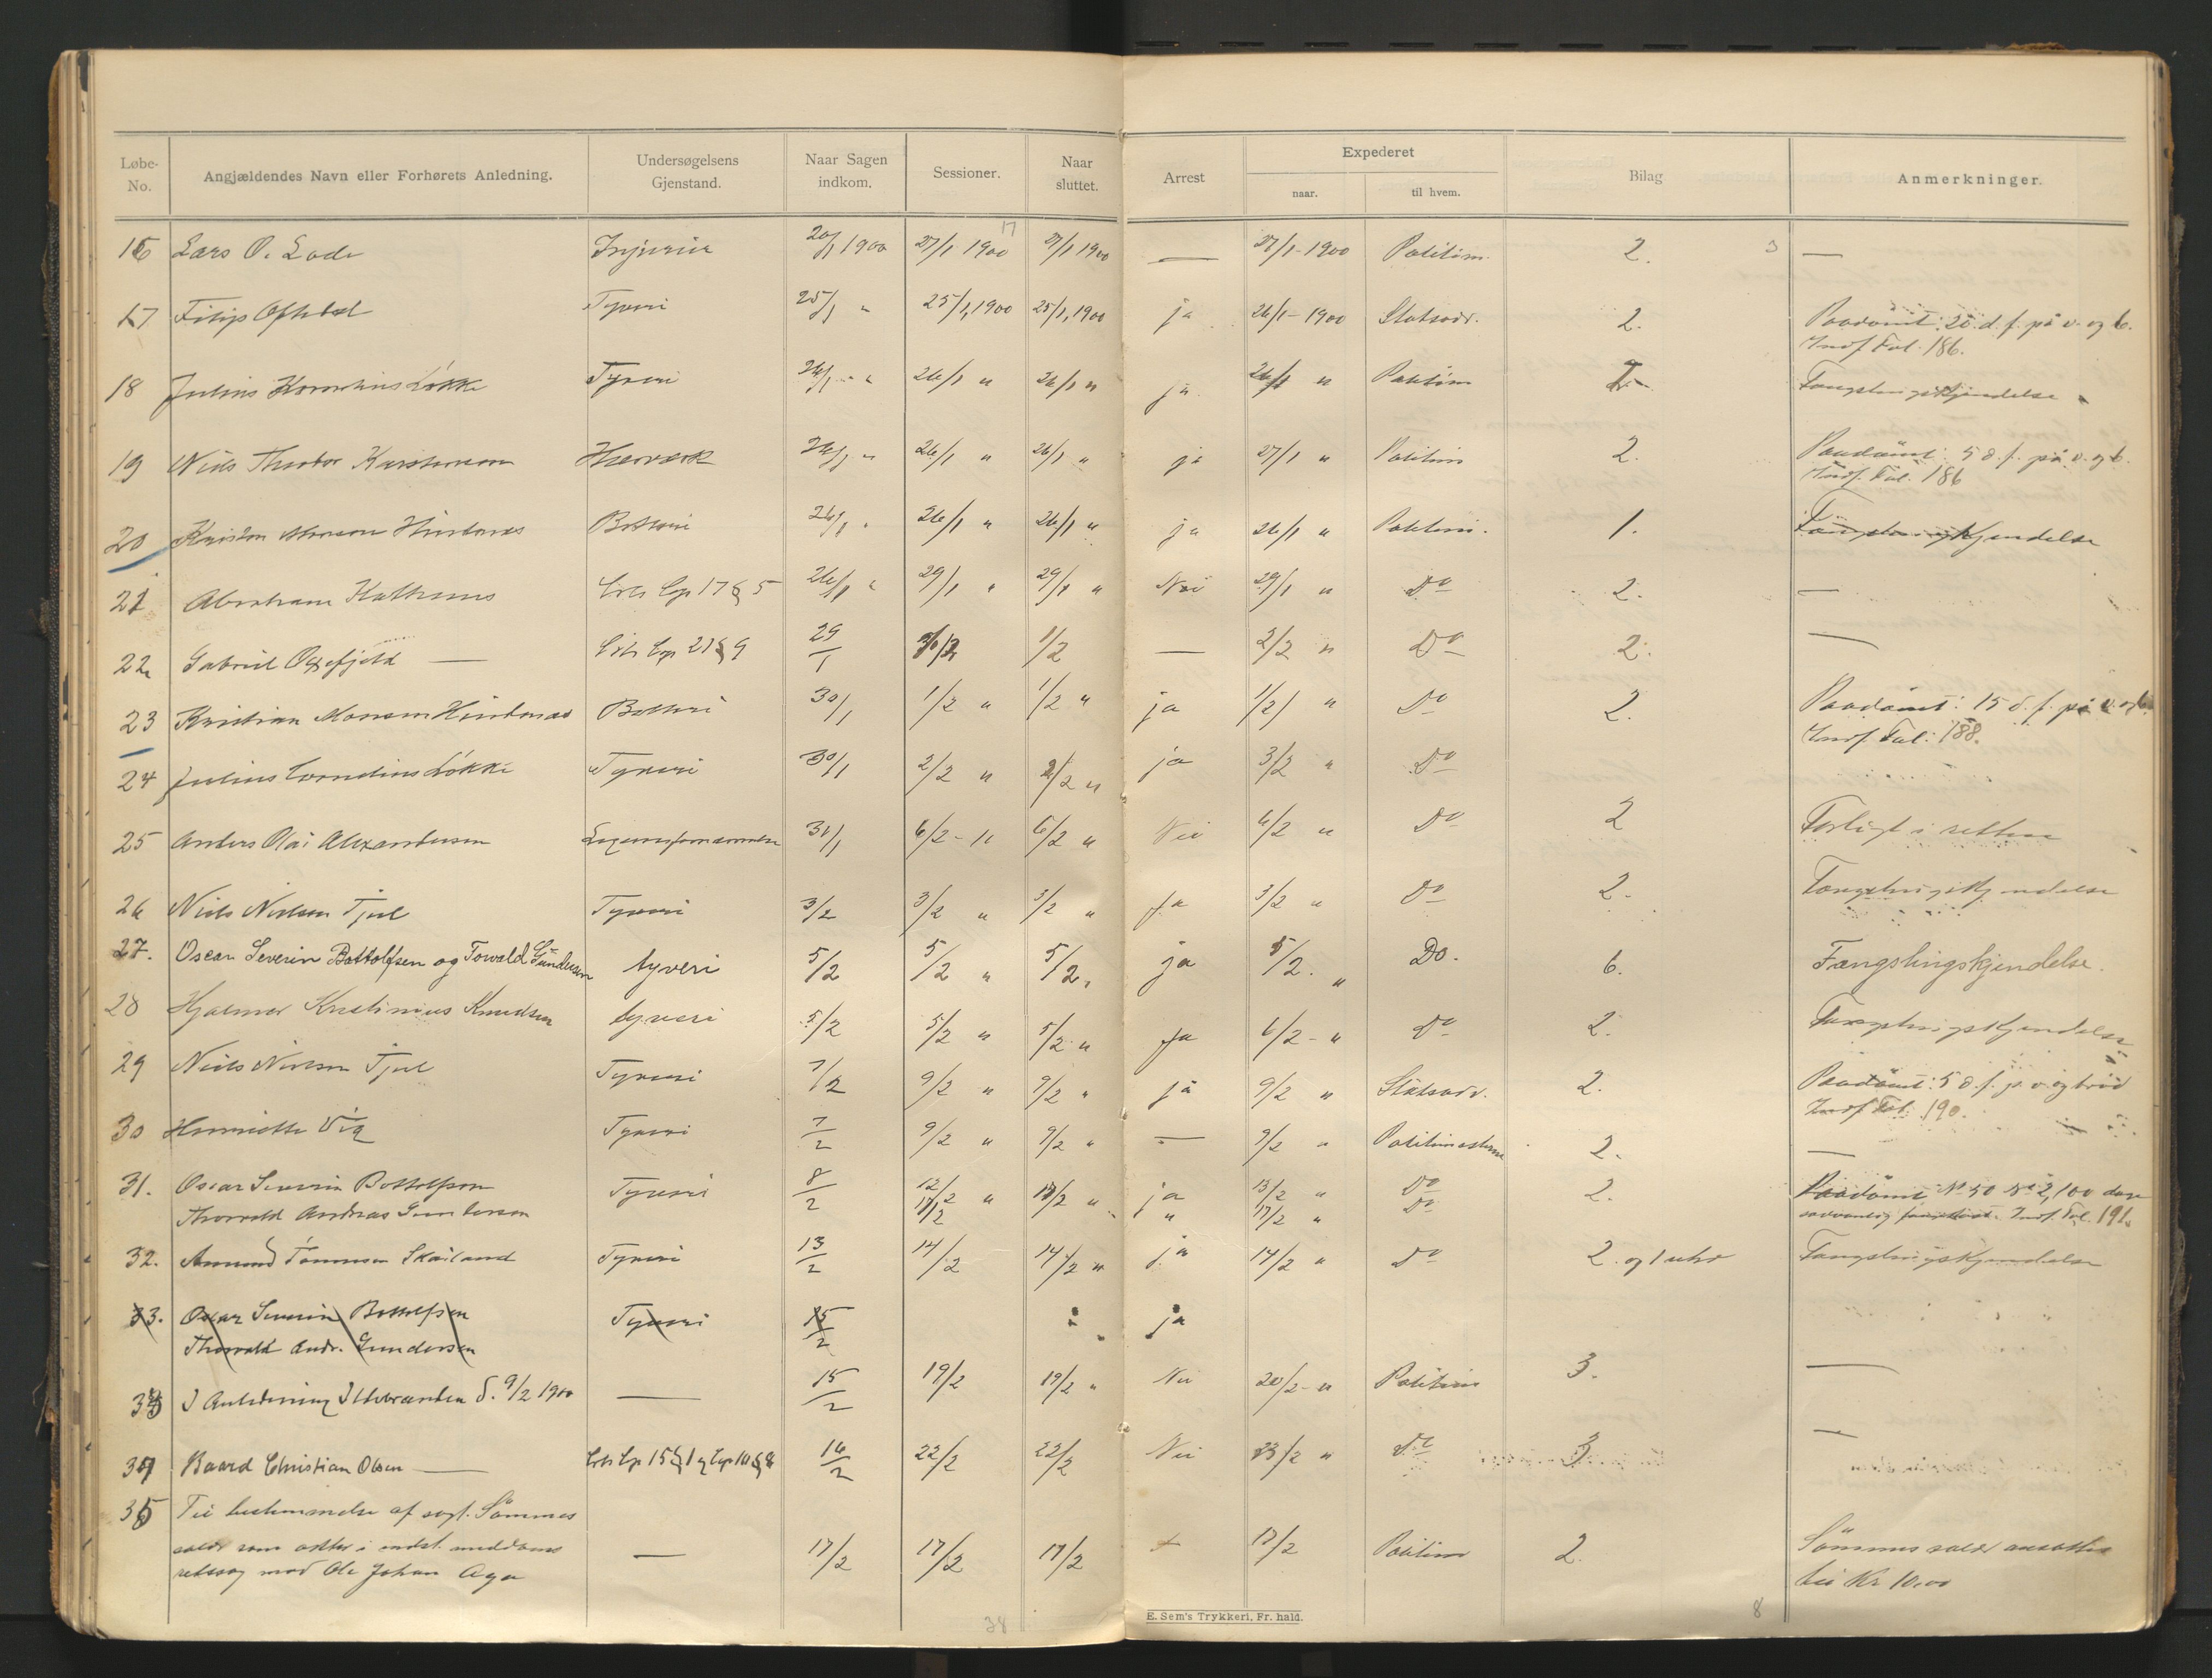 Løbe-No. Angjældendes Navn eller Forhørets Anledning. Undersøgelsens Gjenstand. Naar Sagen indkom. Sessioner. Naar sluttet. Arrest Expederet naar. til hvem. Bilag Anmerkninger.
17 3
16 Lars O. Lode Injurier 20/1 1900 27/1 1900 27/1 1900 — 27/1-1900 Politim. 2. —
17 Filip Oftedal Tyveri 25/1 " 25/1, 1900 25/1, 1900 ja 26/1-1900 Statsadv. 2. Paadömt: 20 d. f. på v. og b.
Indf. Fol. 186.
18 Julius Kornelius Løkke Tyveri 26/1 " 26/1 " 26/1 " ja 26/1 " Politim Fængslingskjendelse
19 Nils Theodor Karstensen Hærverk 26/1 " 26/1 " 26/1 " ja 27/1 " Politim 2. Paadömt: 5 d. f. på v. og b.
Indf. Fol. 186
20 Kristen Monsen Betleri 26/1 " 26/1 " 26/1 " ja 26/1 " Politim. 1. Fængslingskjendelse
21 Abraham 26/1 " 29/1 " 29/1 " Nei 29/1 " Do 2. —
22 Gabriel — 21 § 9 29/1 1/2 — 2/2 " Do 2. —
23 Kristian Monsen Betleri 30/1 1/2 " 1/2 " ja 1/2 " Do 2. Paadömt: 15 d. f. på v. og b.
Indf. Fol: 188.
24 Julius Cornelius Løkke Tyveri 30/1 2/2 " 2/2 " ja 3/2 " Do
25 Anders Olai Alexandersen Legemsfornærmelse 30/1 6/2 - " 6/2 " Nei 6/2 " Do 2 Forligt i retten
26 Niels Nielsen Tjul Tyveri 3/2 3/2 " 3/2 " Ja 3/2 " Do 2. Fængslingskjendelse
27. Oscar Severin Bottolfsen og Torvald Gundersen tyveri 5/2 5/2 " 5/2 " ja 5/2. " Do. 6. Fængslingskjendelse.
28 Hjalmar Kristinius Knudsen tyveri 5/2 5/2 " 5/2 " Ja 6/2 - " Do 2. Fængslingskjendelse
29 Niels Nielsen Tjul Tyveri 7/2 9/2 " 9/2 " ja 9/2 " Statsadv. 2. Paadömt: 5 d. f. p. v. og bröd
Indf. Fol. 190.
30 Henriette Vig Tyveri 7/2 9/2 " 9/2 " — 9/2 " Politimesteren 2. —
31. Oscar Severin Bottolfsen Tyveri 8/2 12/2 " 17/2 " ja 13/2 " Do 2. Paadömt No 50 No 2, 100 dage
Thorvald Andreas Gundersen 17/2 " 17/2 " Do Indf. Fol. 191.
32. Amund Tönnesen Skailand Tyveri 13/2 14/2 14/2 " ja 14/2 " Do 2. og 1 uhr Fængslingskjendelse
33. Oscar Severin Bottolfsen Tyveri 15/2 ja
Thorvald Andr. Gundersen
I Anledning Ildebranden d. 9/2 1900 — 15/2 19/2 19/2 " Nei 20/2 - " Politim 3. —
Baard Christian Olsen — 15 § 1 16/2 22/2 22/2 Nei 23/2 " Do 3 —
Til bestemmelse af Sömmes
salær som i meddoms — 17/2 17/2 17/2 17/2 Politim 2. Sömmes salær ansattes
retssag mod Ole Johan Aga til Kr 10,00
E. Sem's Trykkeri, Fr. hald.
34 8